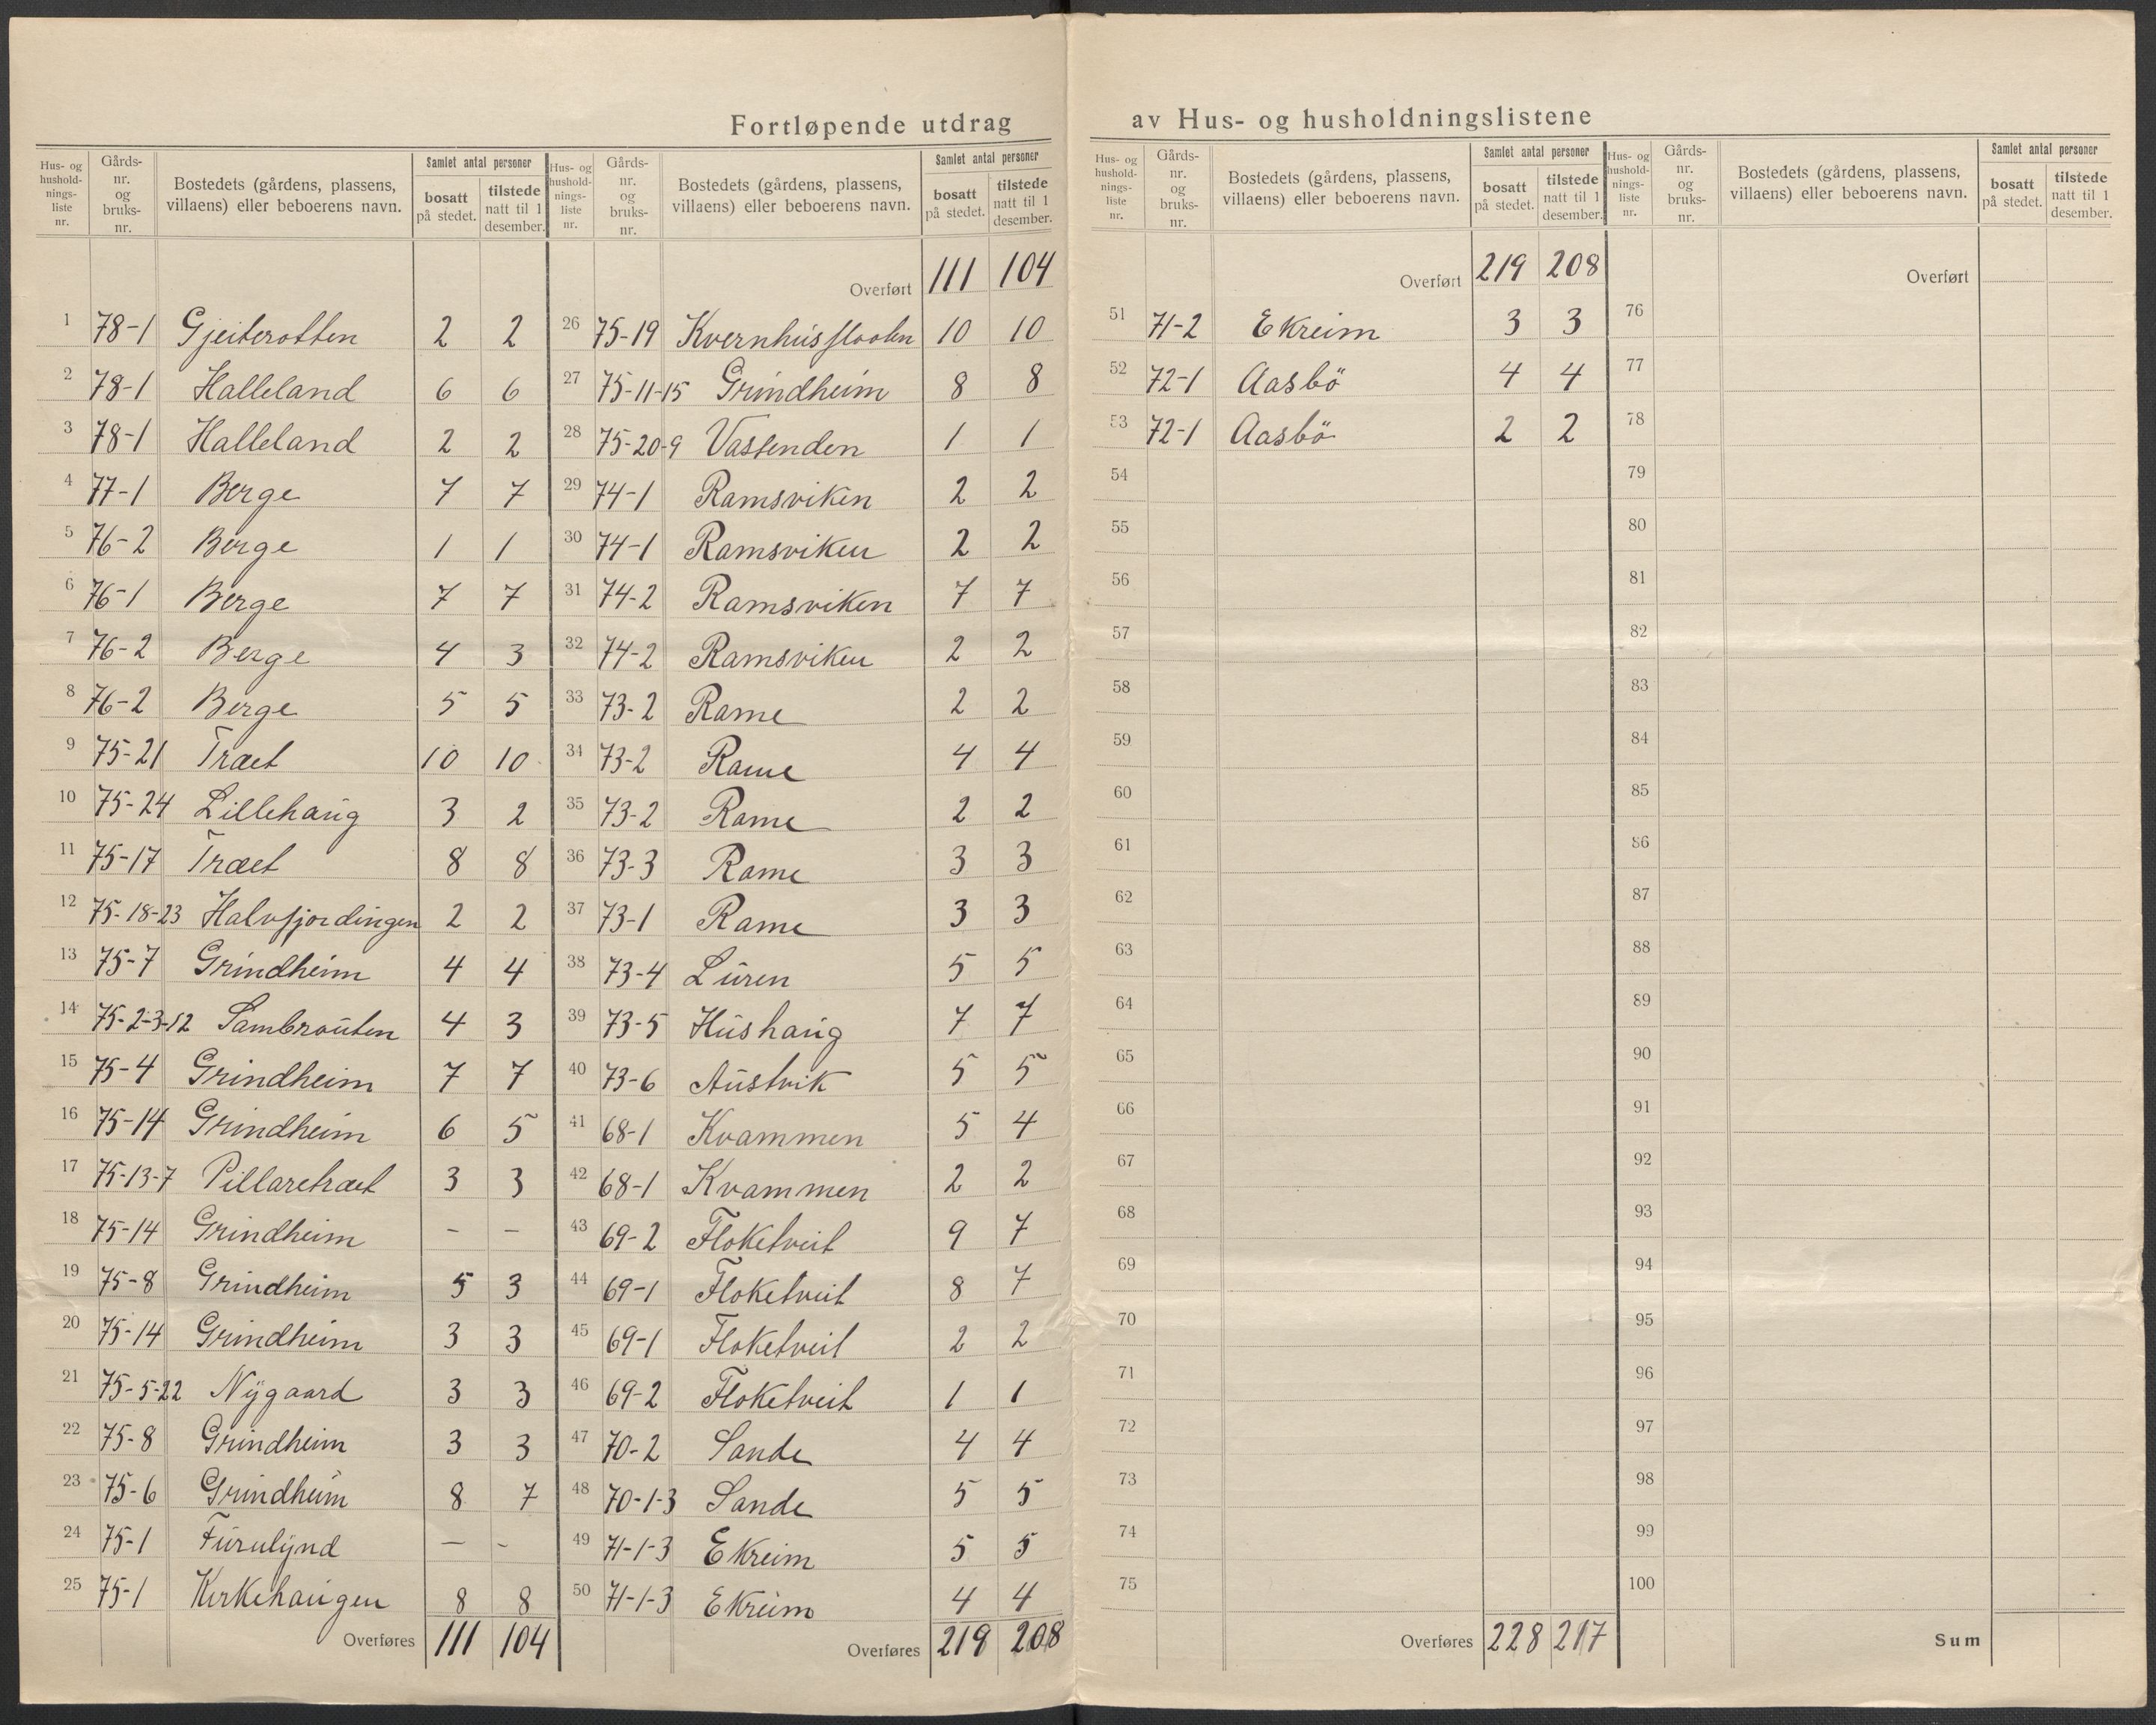 Fortløpende utdrag av Hus- og husholdningslistene
Hus- og husholdnings-liste nr. | Gårds-nr. og bruks-nr. | Bostedets (gårdens, plassens, villaens) eller beboerens navn. | Samlet antal personer | bosatt på stedet. | tilstede natt til 1 desember.
1 78-1 Gjeiterotten 2 2
2 78-1 Halleland 6 6
3 78-1 Halleland 2 2
4 77-1 Berge 7 7
5 76-2 Berge 1 1
6 76-1 Berge 7 7
7 76-2 Berge 4 3
8 76-2 Berge 5 5
9 75-21 Træet 10 10
10 75-24 Lillehaug 3 2
11 75-17 Træet 8 8
12 75-18-23 Halvfjordingen 2 2
13 75-7 Grindheim 4 4
14 75-2-3-12 Sambrouten 4 3
15 75-4 Grindheim 7 7
16 75-14 Grindheim 6 5
17 75-13-7 Pillaretræet 3 3
18 75-14 Grindheim - -
19 75-8 Grindheim 5 3
20 75-14 Grindheim 3 3
21 75-5-22 Nÿgaard 3 3
22 75-8 Grindheim 3 3
23 75-6 Grindheim 8 7
24 75-1 Furulÿnd — -
25 75-1 Kirkehaugen 8 8
Overføres 111 104
Hus- og husholdnings-liste nr. | Gårds-nr. og bruks-nr. | Bostedets (gårdens, plassens, villaens) eller beboerens navn. | Samlet antal personer | bosatt på stedet. | tilstede natt til 1 desember.
Overført 111 104
26 75-19 Kvernhusflooten 10 10
27 75-11-15 Grindheim 8 8
28 75-20-9 Vassenden 1 1
29 74-1 Ramsviken 2 2
30 74-1 Ramsviken 2 2
31 74-2 Ramsviken 7 7
32 74-2 Ramsviken 2 2
33 73-2 Rame 2 2
34 73-2 Rame 4 4
35 73-2 Rame 2 2
36 73-3 Rame 3 3
37 73-1 Rame 3 3
38 73-4 Luren 5 5
39 73-5 Hushaug 7 7
40 73-6 Austvik 5 5
41 68-1 Kvammen 5 4
42 68-1 Kvammen 2 2
43 69-2 Floketveit 9 7
44 69-1 Floketveit 8 7
45 69-1 Floketveit 2 2
46 69-2 Floketveit 1 1
47 70-2 Sande 4 4
48 70-1-3 Sande 5 5
49 71-1-3 Ekreim 5 5
50 71-1-3 Ekreim 4 4
Overføres 219 208
Hus- og hushold-nings-liste nr. | Gårds-nr. og bruks-nr. | Bostedets (gårdens, plassens, villaens) eller beboerens navn. | Samlet antal personer | bosatt på stedet. | tilstede natt til 1 desember.
Overført 219 208
51 71-2 Ekreim 3 3
52 72-1 Aasbö 4 4
53 72-1 Aasbö 2 2
54
55
56
57
58
59
60
61
62
63
64
65
66
67
68
69
70
71
72
73
74
75
Overføres 228 217
Hus- og hushold-nings-liste nr. | Gårds-nr. og bruks-nr. | Bostedets (gårdens, plassens, villaens) eller beboerens navn. | Samlet antal personer | bosatt på stedet. | tilstede natt til 1 desember.
Overført
76
77
78
79
80
81
82
83
84
85
86
87
88
89
90
91
92
93
94
95
96
97
98
99
100
Sum